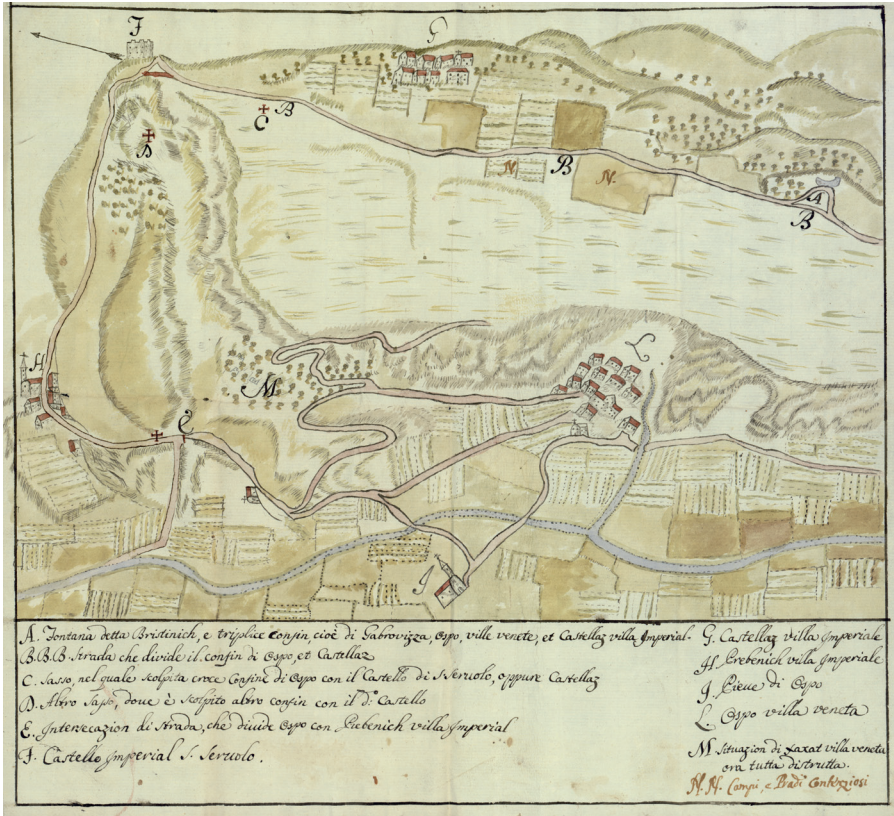 F
G
C
B
D
B
N.
N.
A
B
H
L
M
E
J
A. Fontana detta Bristinich, e triplice confin, cioè di Gabrovizza, Ospo, ville venete, et Castellaz villa Imperial.
B.B.B. Strada che divide il confin di Ospo, et Castellaz
C. Sasso, nel quale scolpita croce Confine di Ospo con il Castello di S. Servolo, oppure Castellaz
D. Altro Sasso, doue è scolpito altro confin con il d:º Castello
E. Intersecazion di strada, che divide Ospo con Prebenich villa Imperial
F. Castello Imperial S. Servolo.
G. Castellaz villa Imperiale
H. Prebenich villa Imperiale
J. Pieue di Ospo
L. Ospo villa veneta
M. Situazion di Laxat villa veneta
ora tutta distrutta.
N. N. Campi, e Pradi Contenziosi